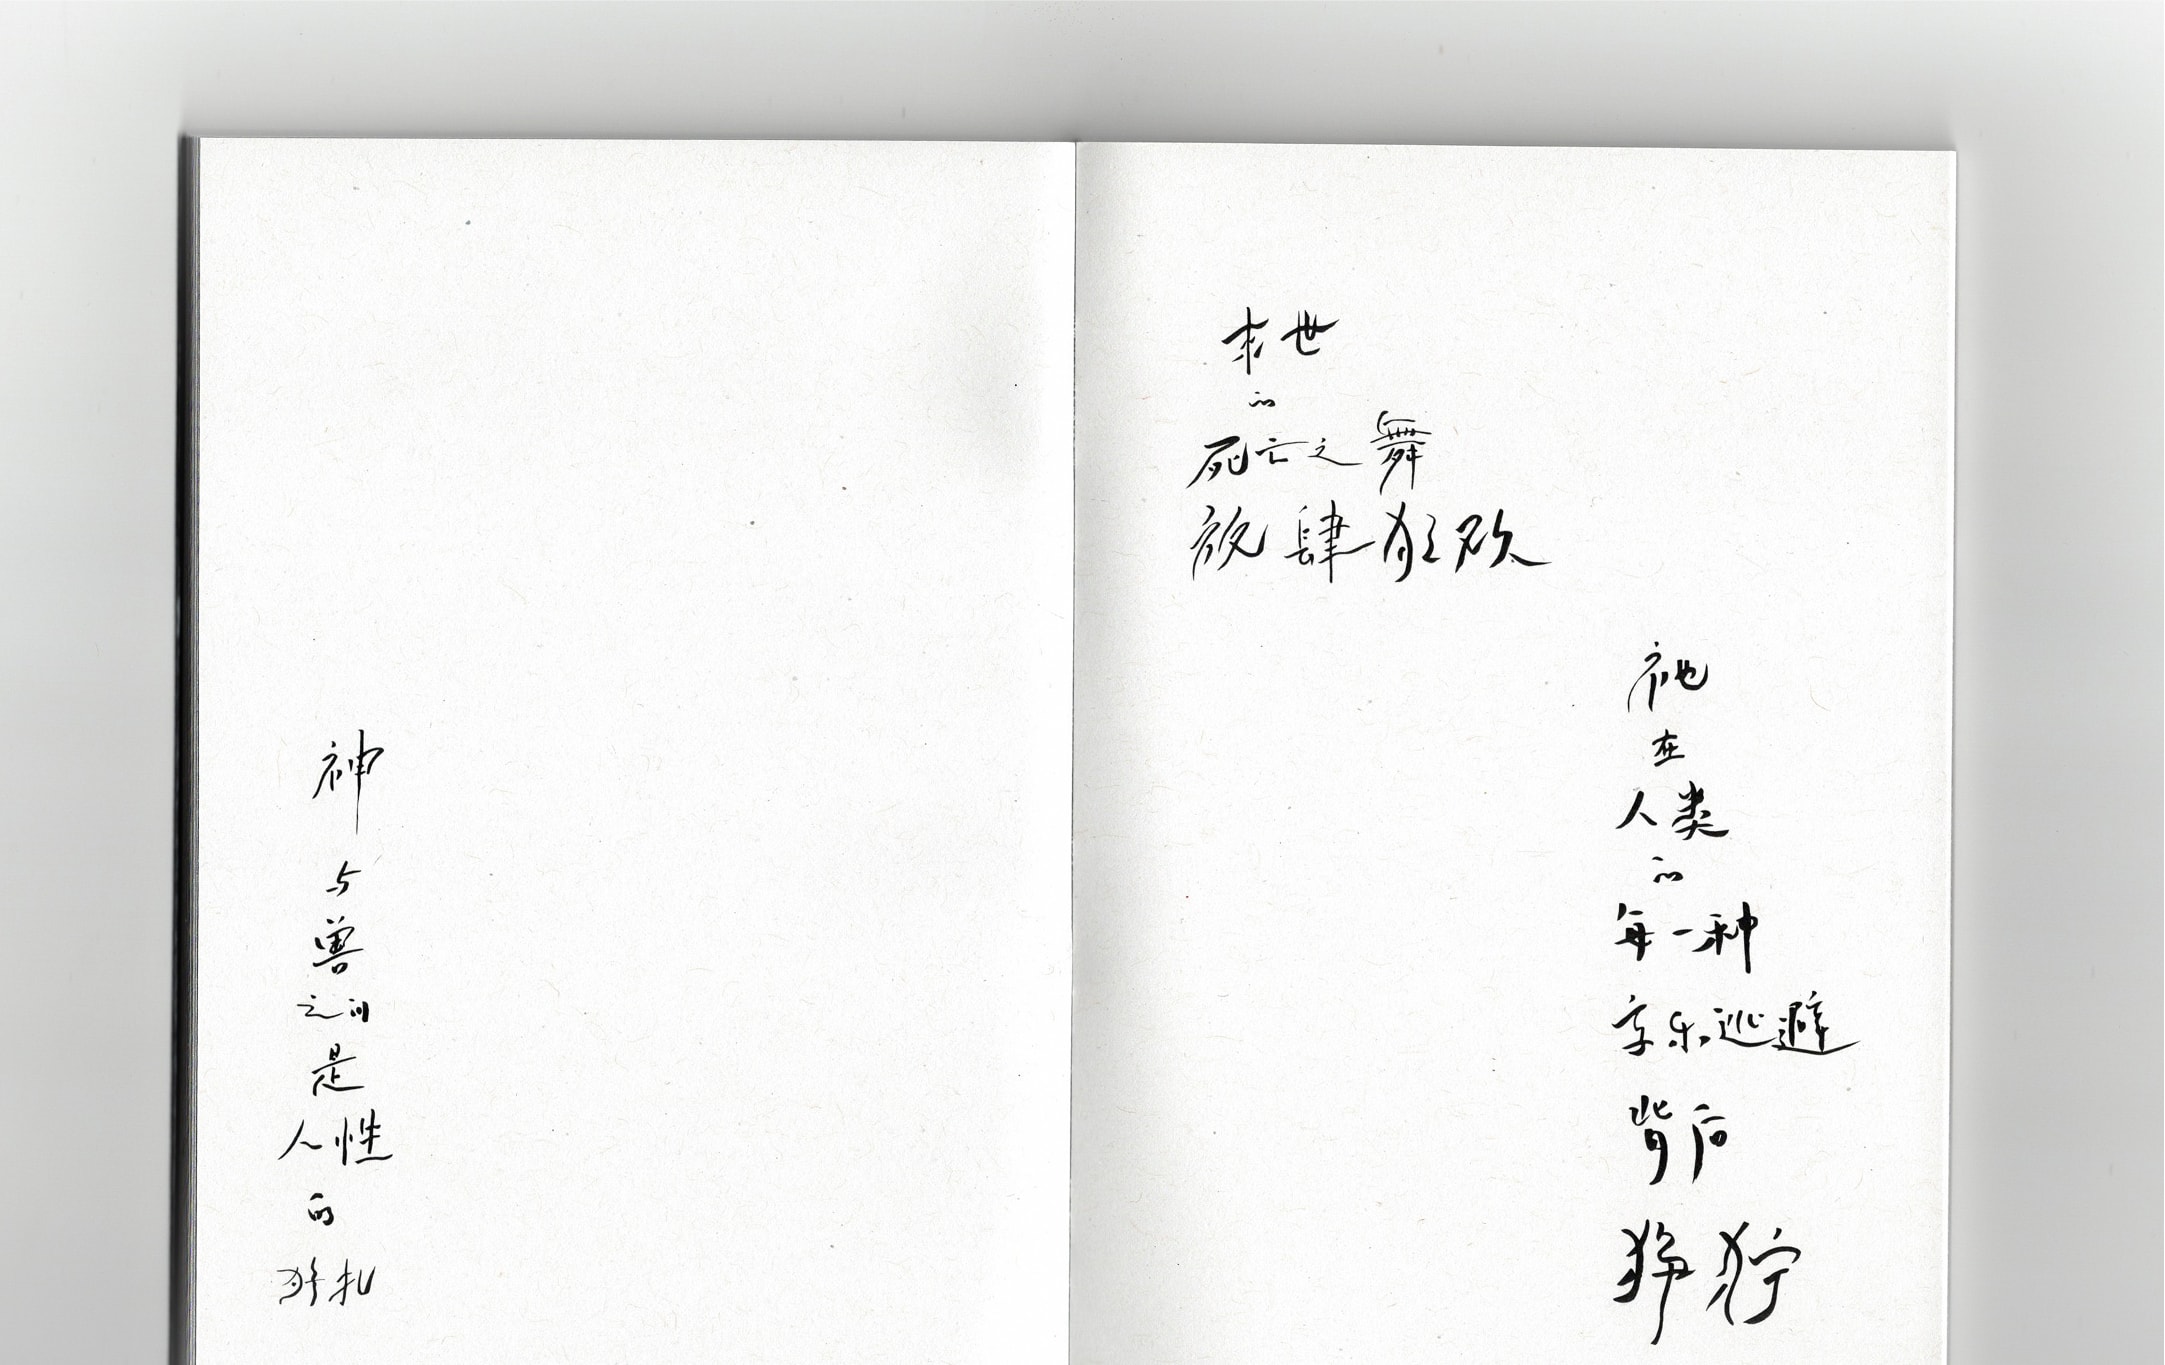 神
与
兽
之间
是
人性
的
挣扎
末世
的
死亡之舞
放肆狂欢
祂
在
人类
的
每一种
享乐逃避
背后
狰狞